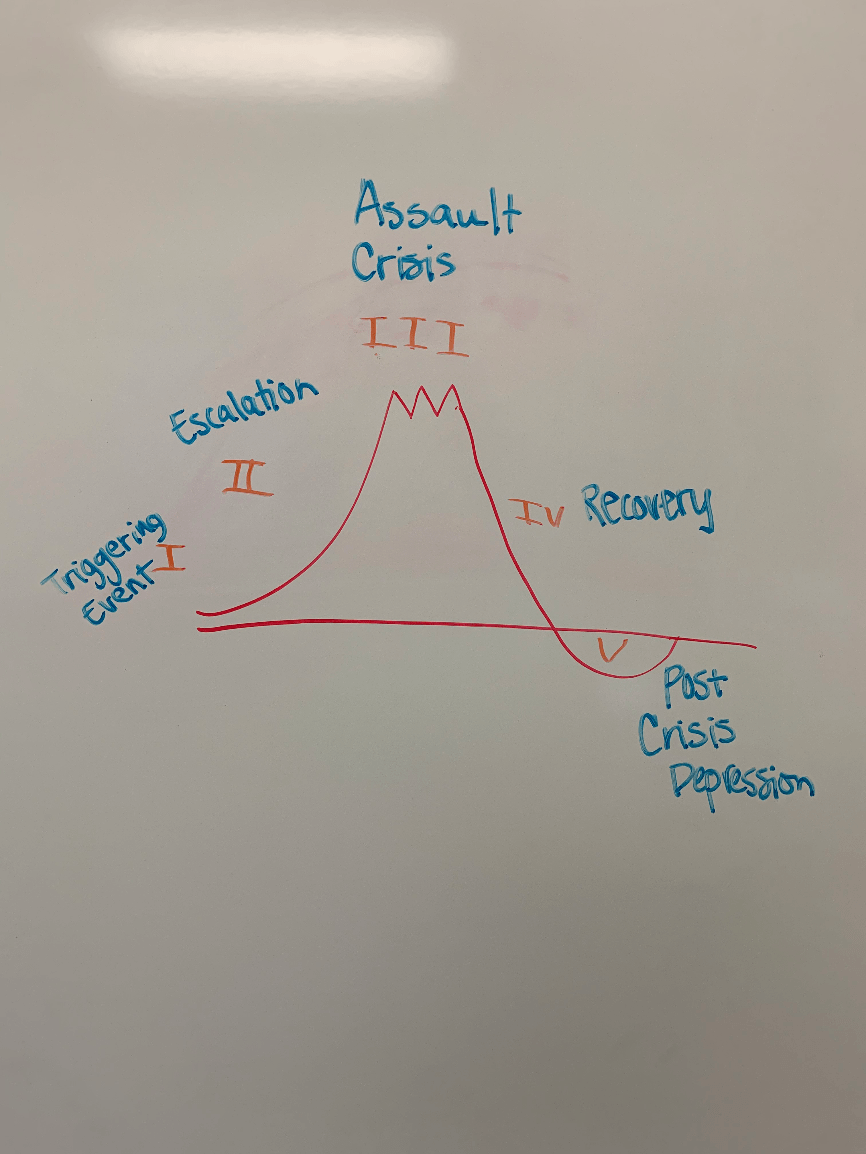 Assault
Crisis
III
Escalation
II
Triggering
Event
I
IV Recovery
V
Post
Crisis
Depression